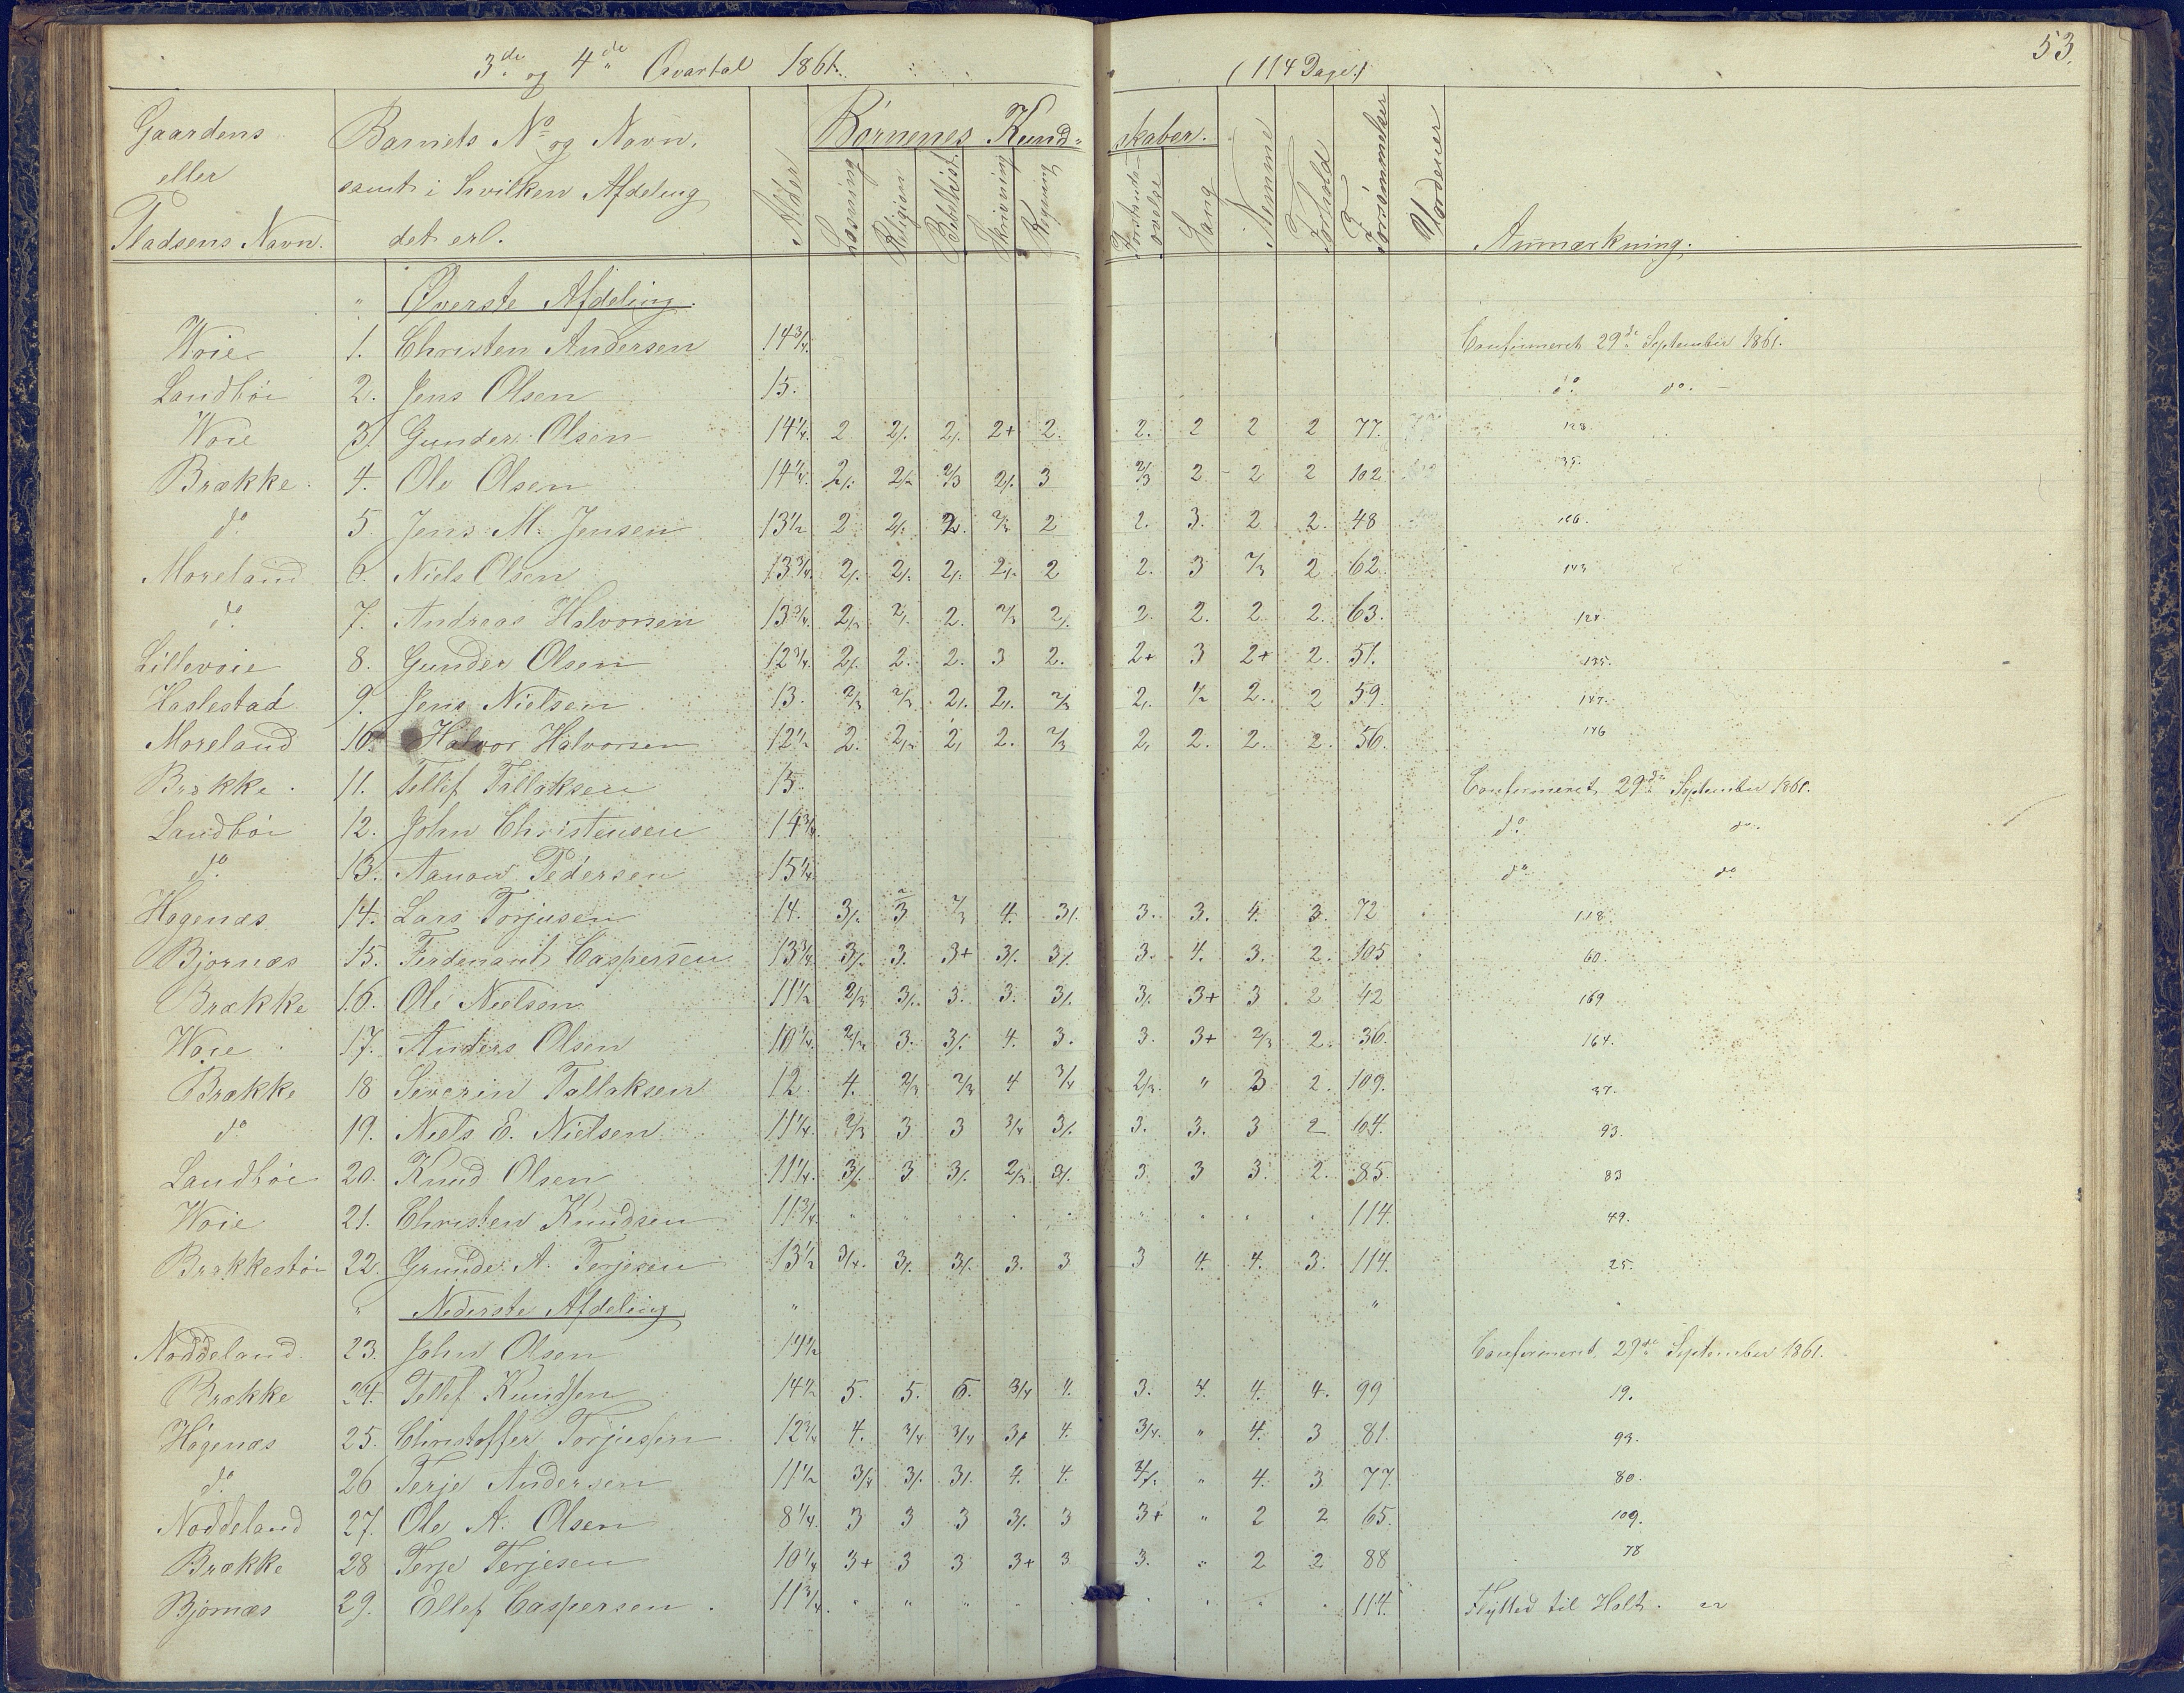 3de og 4de Qvartal 1861.
(114 Dage.)
53.
Gaardens eller Pladsens Navn.
Barnets No og Navn, samt i hvilken Afdeling det er.
Alder
Børnenes Kundskaber.
Læsning
Religion
Bibelhist.
Skrivning
Regning
Forstandsøvelse
Sang
Nemme
Forhold
Forsømmelser
Vordener
Anmærkning.
" Øverste Afdeling.
Woie 1. Christen Andersen 14 3/4. Confirmeret 29de September 1861.
Landbøi 2. Jens Olsen 15. do. do. -
Woie 3. Gunder Olsen 14 1/4. 2 2/. 2/. 2+ 2. 2. 2 2 2 77. 128.
Brække 4. Ole Olsen 14 1/4. 2/. 2/. 2/3 2/. 3 2/3 2 2 2 102. 35.
do 5 Jens M. Jensen 13 1/2 2 2/. 2. 2/3 2 2. 3. 2 2. 48 126.
Moreland 6. Niels Olsen 13 3/4. 2/. 2/. 2/. 2/. 2 2. 3 2/3 2 62. 143
do. 7. Andreas Halvorsen 13 3/4. 2/3 2/. 2. 2/3 2/. 2. 2. 2 2. 63. 124
Lillevoie 8. Gunder Olsen 12 3/4. 2/. 2. 2. 3 2. 2+ 3 2+ 2. 51. 135.
Haslestad 9. Jens Nielsen 13. 2/3 2/3 2/. 2/. 2/3 2. 1/2 2. 2 59. 147.
Moreland 10. Halvor Halvorsen 12 1/2 2. 2/. 2/ 2. 2/3 2. 2. 2. 2. 56. 146
Brække 11. Tellef Tallaksen 15. Confirmeret 29de September 1861.
Landbøi 12. John Christensen 14 3/4. do. do.
do. 13. Aanon Pedersen 15 1/4. do do
Hogenæs 14. Lars Torjusen 14. 3/. 3 2/3 4. 3/. 3. 3. 4. 3. 72 118.
Bjornæs 15. Ferdenant Caspersen 13 3/4. 3/. 3. 3+ 3/. 3/. 3. 4. 3. 2. 105 60.
Brække 16. Ole Nielsen 11 1/2 2/3 3/. 3. 3. 3/. 3/. 3+ 3 2 42 169
Woie 17. Anders Olsen 10 1/4. 2/3. 3. 3/. 4. 3. 3. 3+ 2/3 2. 36. 164.
Brække 18 Severin Tallaksen 12 4. 2/3 2/3 4 3/4 2/3. " 3 2. 109. 37.
do 19. Niels E. Nielsen 11 1/4. 2/3 3 3 3/4 3/. 3. 3. 3 2 104. 93.
Landbøi 20. Knud Olsen 11 1/4. 3/. 3 3/. 2/3 3/. 3 3 3. 2. 85. 83
Woie 21. Christen Knudsen 11 3/4. 114. 49.
Brækkestøi 22. Grunde A. Terjesen 13 1/2 3/4. 3/. 3/. 3. 3 3 4. 4. 3. 114. 25.
" Nederste Afdeling " "
Noddeland. 23. John Olsen 14 1/2 Confirmeret 29de September 1861.
Brække 24. Tellef Knudsen 14 1/2 5. 5. 5. 3/4 4. 3. 4. 4. 4. 99 19.
Hogenæs 25. Christoffer Torjusen 12 3/4 4. 3/4 3/4 3/. 4. 3/4. " 4. 3 81. 93.
do. 26 Terje Andersen 11 1/2 3/4 3/. 3/. 4. 4. " 4. 3 77. 80.
Noddeland 27. Ole A. Olsen 8 1/4. 3 3 3 3/. 3 3+ " 2 2 65. 109.
Brække 28 Terje Terjesen 10 1/4 3+ 3 3 3+ 3 3. " 2 2 88 78
Bjornæs 29. Ellef Caspersen. 11 3/4. 114. Flytted til Holt.